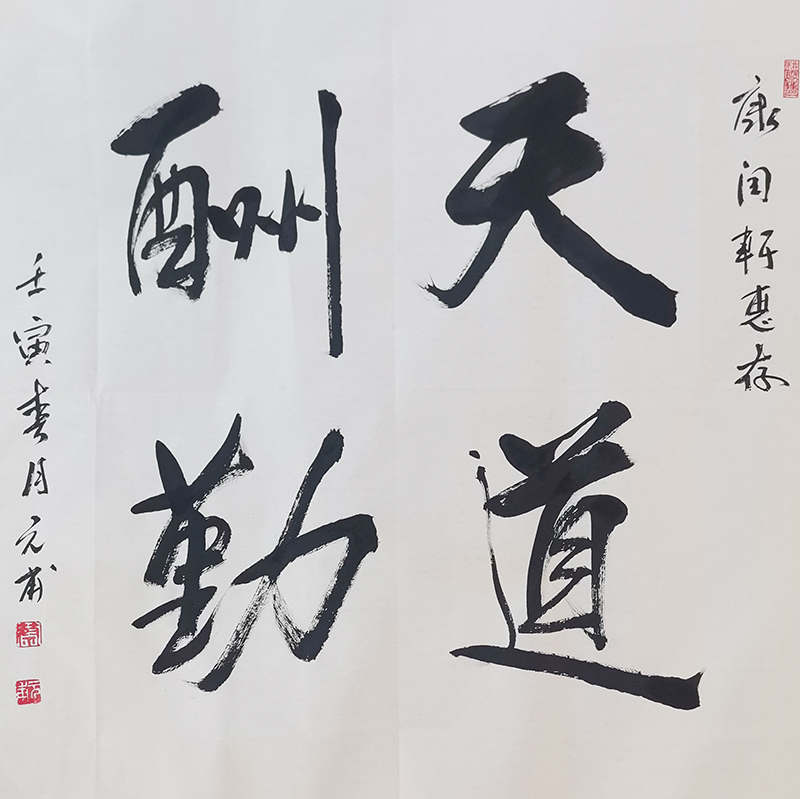 康闰轩惠存
天道
酬勤
壬寅春月元甫